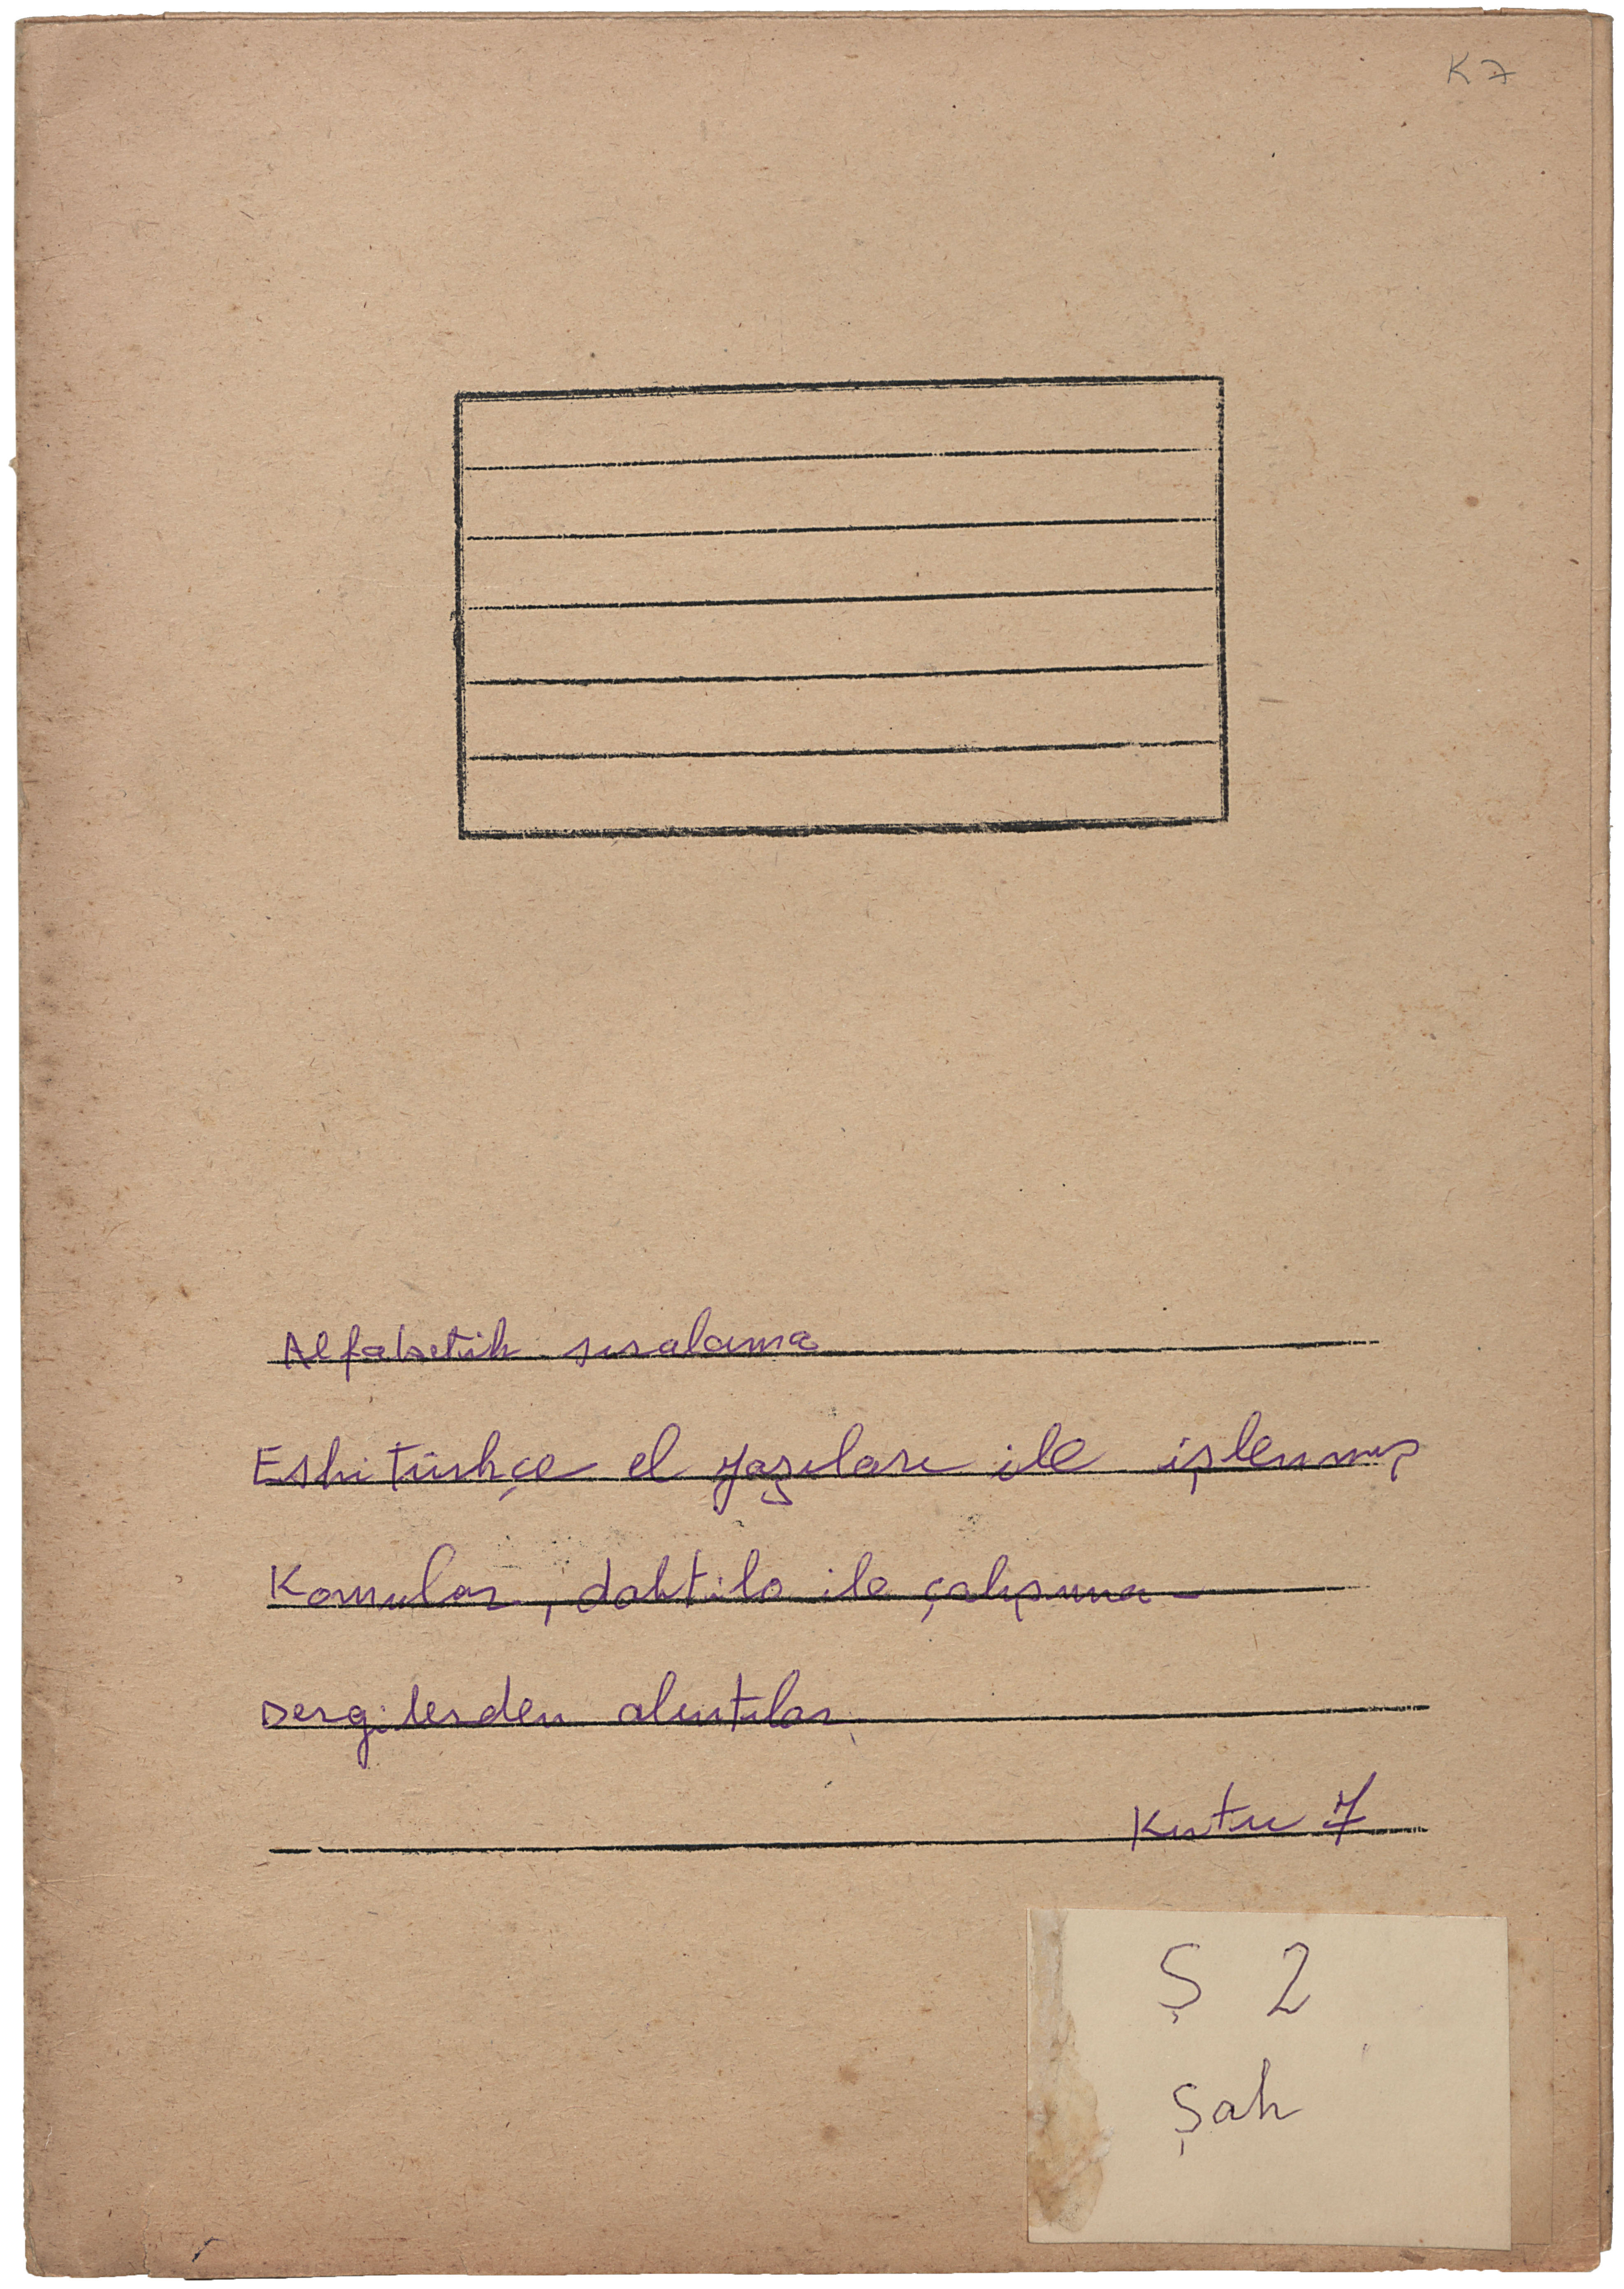 K7
Alfabetik sıralama
Eski türkçe el yazıları ile işlenmiş
Konular, daktilo ile çalışma -
Dergilerden alıntılar
Kutu 7
Ş 2
Şah